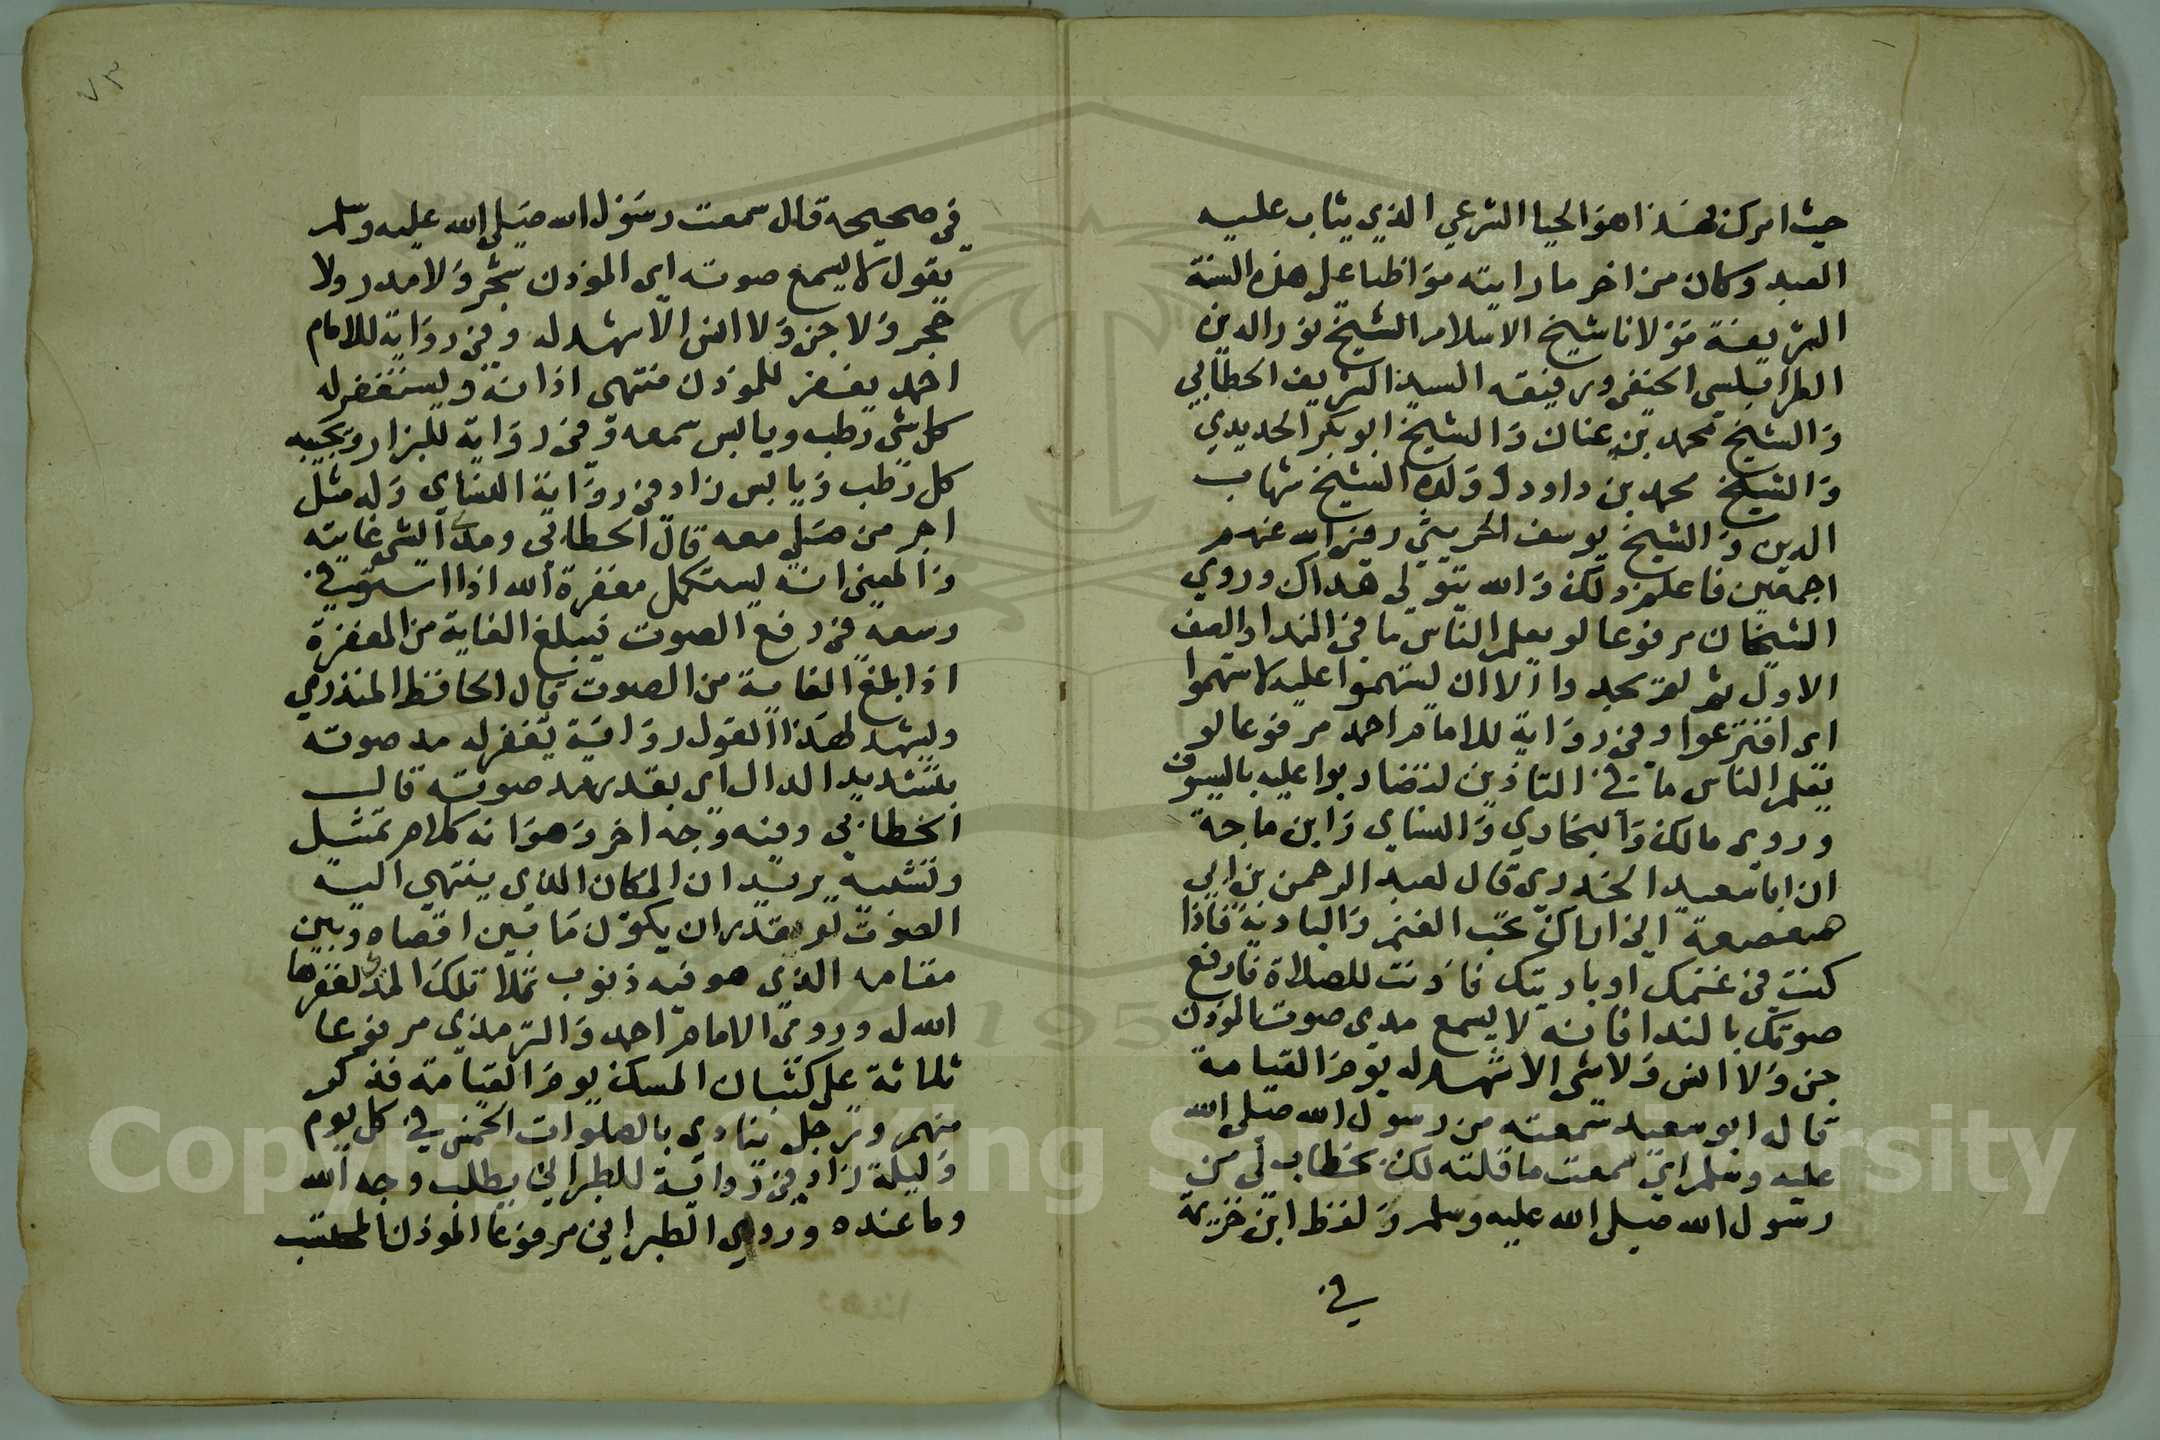 حيث امرك فهذا هو الحيا الشرعي الذي يثاب عليه
العبد وكان من اخر ما رايته مواظبا على هذه السنة
الشريفة مولانا شيخ الاسلام الشيخ نور الدين
الطرابلسي الحنفي ورفيقه السيد الشريف الحطابي
والشيخ محمد بن عنان والشيخ ابو بكر الحديدي
والشيخ محمد بن داود وولده الشيخ شهاب
الدين والشيخ يوسف الحريثي رضي الله عنهم
اجمعين فاعلم ذلك والله يتولى هداك وروي
الشيخان مرفوعا لو يعلم الناس ما في الندا والصف
الاول ثم لم يجدوا الا ان يستهموا عليه لاستهموا
اي اقترعوا وفي رواية للامام احمد مرفوعا لو
يعلم الناس ما في التاذين لتضاربوا عليه بالسيوف
وروى مالك والبخاري والنساي وابن ماجة
ان ابا سعيد الخدري قال لعبد الرحمن بن ابي
صعصعة اني اراك تحب الغنم والبادية فاذا
كنت في غنمك او باديتك فاذنت للصلاة فارفع
صوتك بالندا فانه لا يسمع مدى صوت الموذن
جن ولا انس ولا شي الا شهد له يوم القيامة
قال ابو سعيد سمعته من رسول الله صلى الله
عليه وسلم اي سمعت ما قلته لك بخطاب لي من
رسول الله صلى الله عليه وسلم ولفظ ابن خزيمة
في
٧٣
في صحيحه قال سمعت رسول الله صلى الله عليه وسلم
يقول لا يسمع صوته اي الموذن شجر ولا مدر ولا
حجر ولا جن ولا انس الا شهد له وفي رواية للامام
احمد يغفر للموذن منتهى اذانه ويستغفر له
كل شي رطب ويابس سمعه وفي رواية للبزار ويجيبه
كل رطب ويابس زاد في رواية النساي وله مثل
اجر من صلى معه قال الخطابي ومدى الشي غايته
والمعنى انه يستكمل مغفرة الله اذا استوفى
وسعه في رفع الصوت فيبلغ الغاية من المغفرة
اذا بلغ الغاية من الصوت قال الحافظ المنذري
ويشهد لهذا القول رواية يغفر له مد صوته
بتشديد الدال اي بقدر مد صوته قال
الخطابي وفيه وجه اخر وهو انه كلام تمثيل
وتشبيه يريد ان المكان الذي ينتهي اليه
الصوت لو يقدر ان يكون ما بين اقصاه وبين
مقامه الذي هو فيه ذنوب تملا تلك المدى لغفرها
الله له وروى الامام احمد والترمذي مرفوعا
ثلاثة على كثبان المسك يوم القيامة فذكر
منهم ورجل ينادي بالصلوات الخمس في كل يوم
وليلة زاد في رواية للطبراني يطلب وجه الله
وما عنده وروي الطبراني مرفوعا الموذن المحتسب
Copyright © King Saud University
195